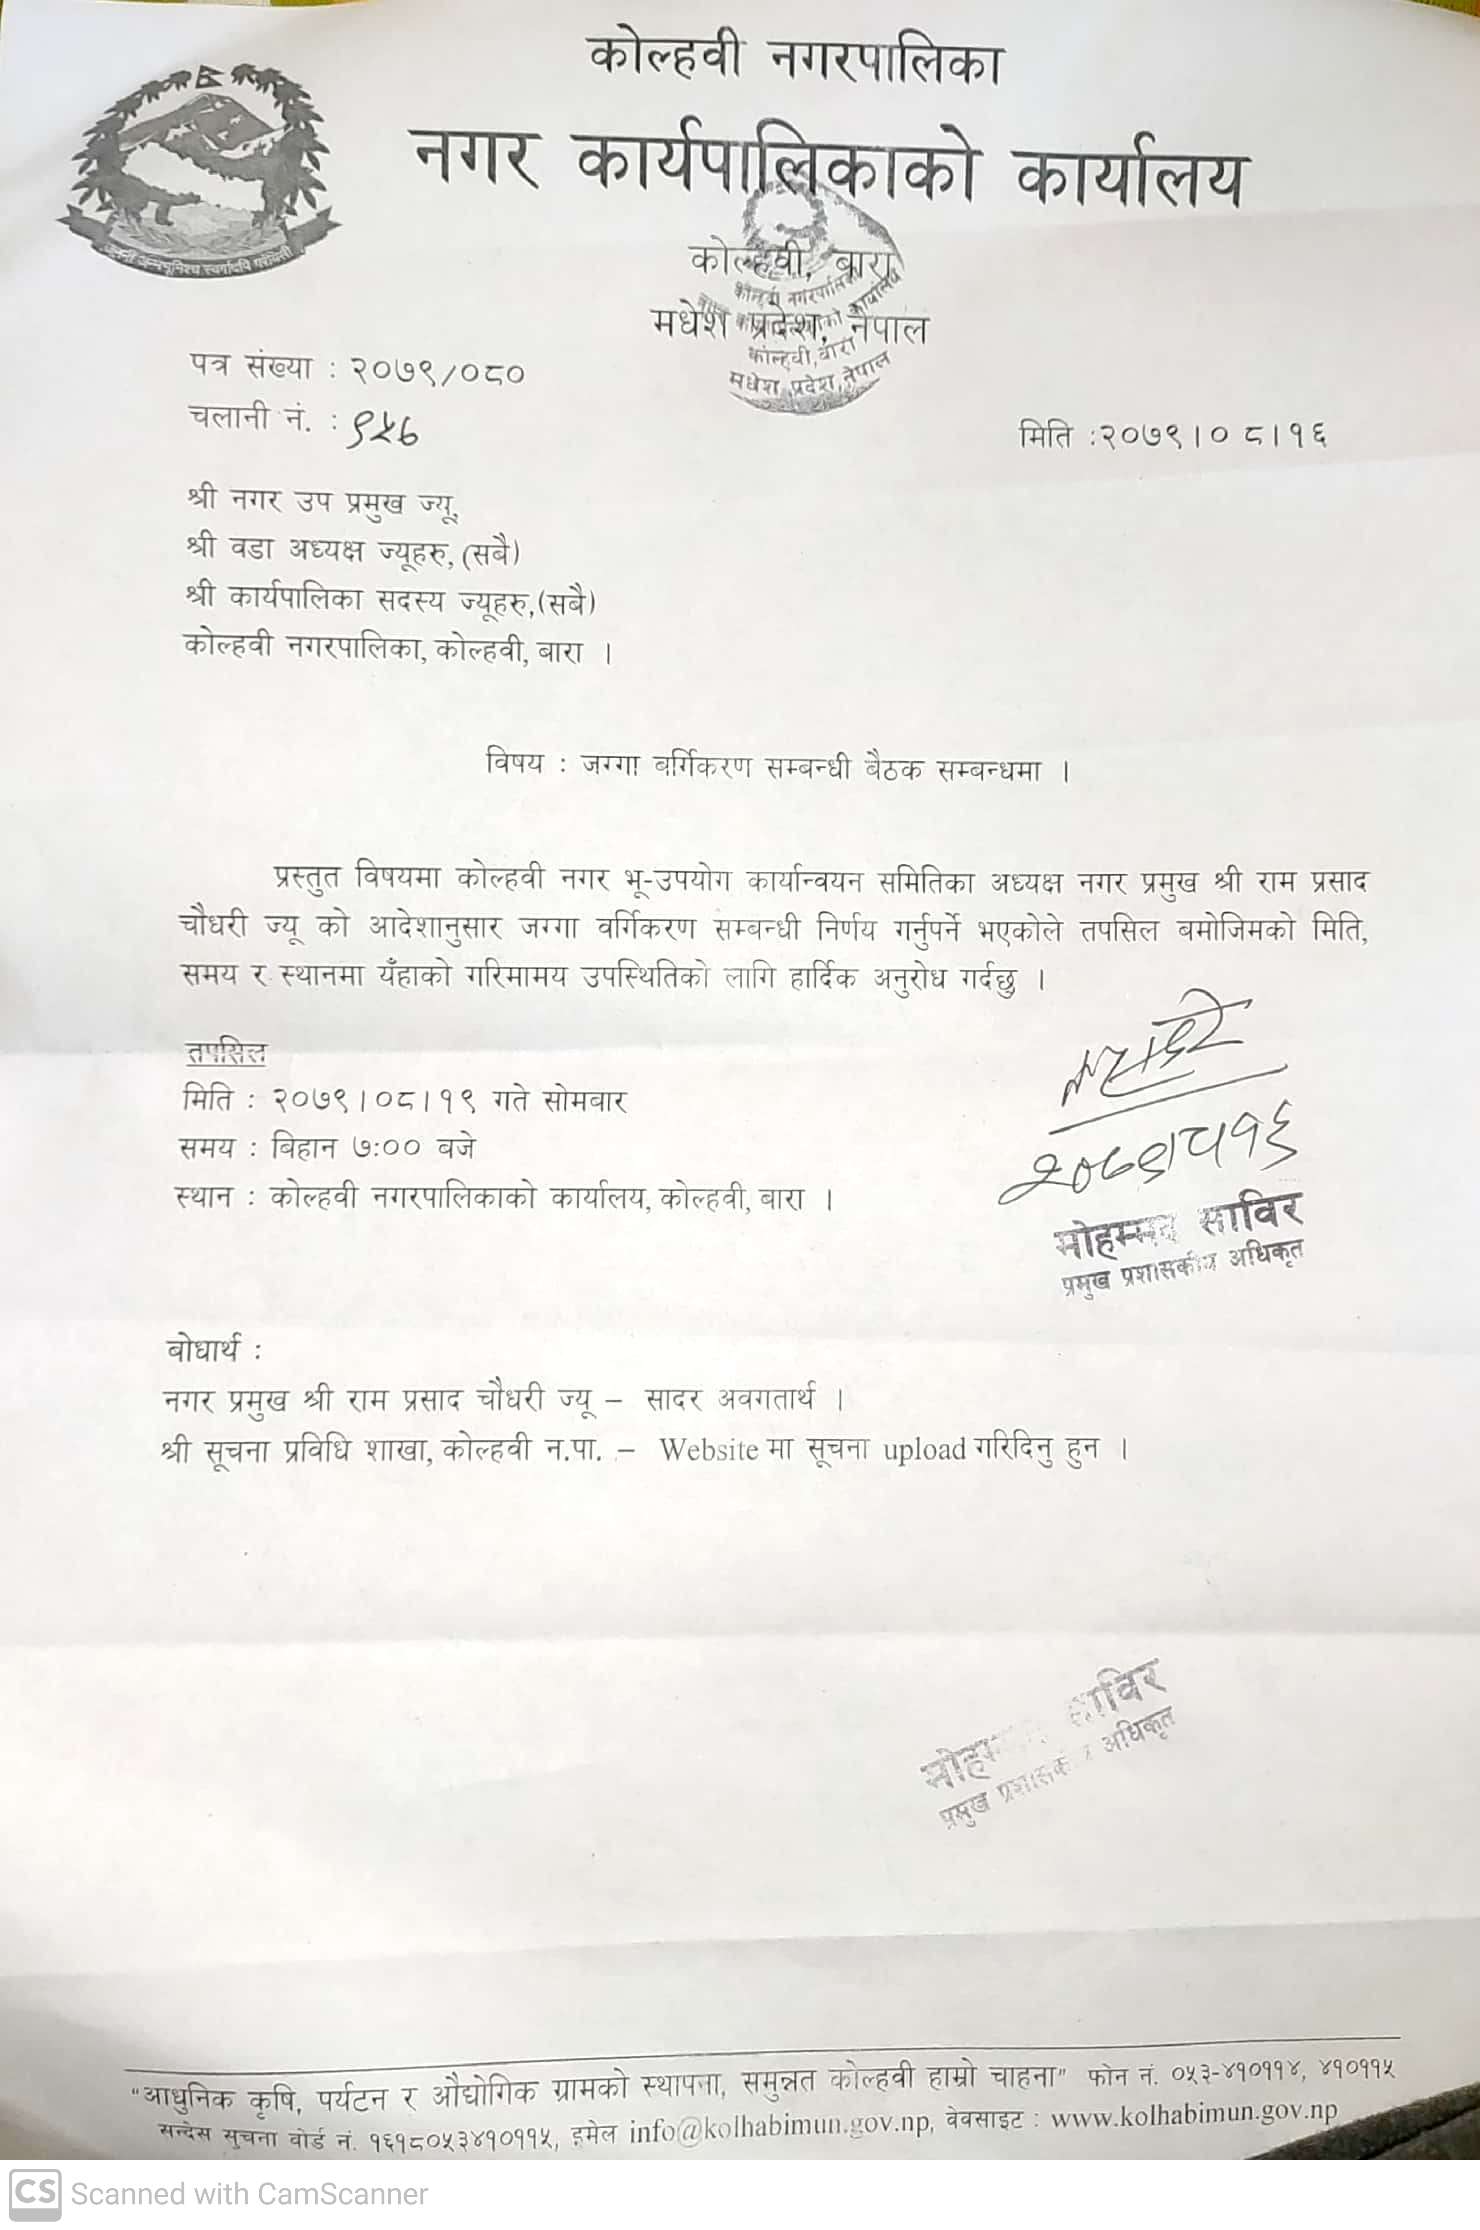 कोल्हवी नगरपालिका
नगर कार्यपालिकाको कार्यालय
कोल्हवी, बारा
मधेश प्रदेश, नेपाल
कोल्हवी नगरपालिका
कोल्हवी, बारा
मधेश प्रदेश, नेपाल
पत्र संख्या : २०७९/०८०
चलानी नं. : ९५७
मिति :२०७९।०८।१६
श्री नगर उप प्रमुख ज्यू,
श्री वडा अध्यक्ष ज्यूहरु,(सबै)
श्री कार्यपालिका सदस्य ज्यूहरु,(सबै)
कोल्हवी नगरपालिका, कोल्हवी, बारा ।
विषय : जग्गा बर्गिकरण सम्बन्धी बैठक सम्बन्धमा ।
प्रस्तुत विषयमा कोल्हवी नगर भू-उपयोग कार्यान्वयन समितिका अध्यक्ष नगर प्रमुख श्री राम प्रसाद
चौधरी ज्यू को आदेशानुसार जग्गा वर्गिकरण सम्बन्धी निर्णय गर्नुपर्ने भएकोले तपसिल बमोजिमको मिति,
समय र स्थानमा यँहाको गरिमामय उपस्थितिको लागि हार्दिक अनुरोध गर्दछु ।
तपसिल
मिति : २०७९।०८।१९ गते सोमबार
समय : बिहान ७:०० बजे
स्थान : कोल्हवी नगरपालिकाको कार्यालय, कोल्हवी, बारा ।
२०७९।८।१६
मोहम्मद साविर
प्रमुख प्रशासकीय अधिकृत
बोधार्थ :
नगर प्रमुख श्री राम प्रसाद चौधरी ज्यू – सादर अवगतार्थ ।
श्री सूचना प्रविधि शाखा, कोल्हवी न.पा. – Website मा सूचना upload गरिदिनु हुन ।
मोहम्मद साविर
प्रमुख प्रशासकीय अधिकृत
"आधुनिक कृषि, पर्यटन र औद्योगिक ग्रामको स्थापना, समुन्नत कोल्हवी हाम्रो चाहना" फोन नं. ०५३-४१०११४, ४१०११५
सन्देस सुचना वोर्ड नं. १६१८०५३४१०११५, इमेल info@kolhabimun.gov.np, वेवसाइट : www.kolhabimun.gov.np
CS Scanned with CamScanner